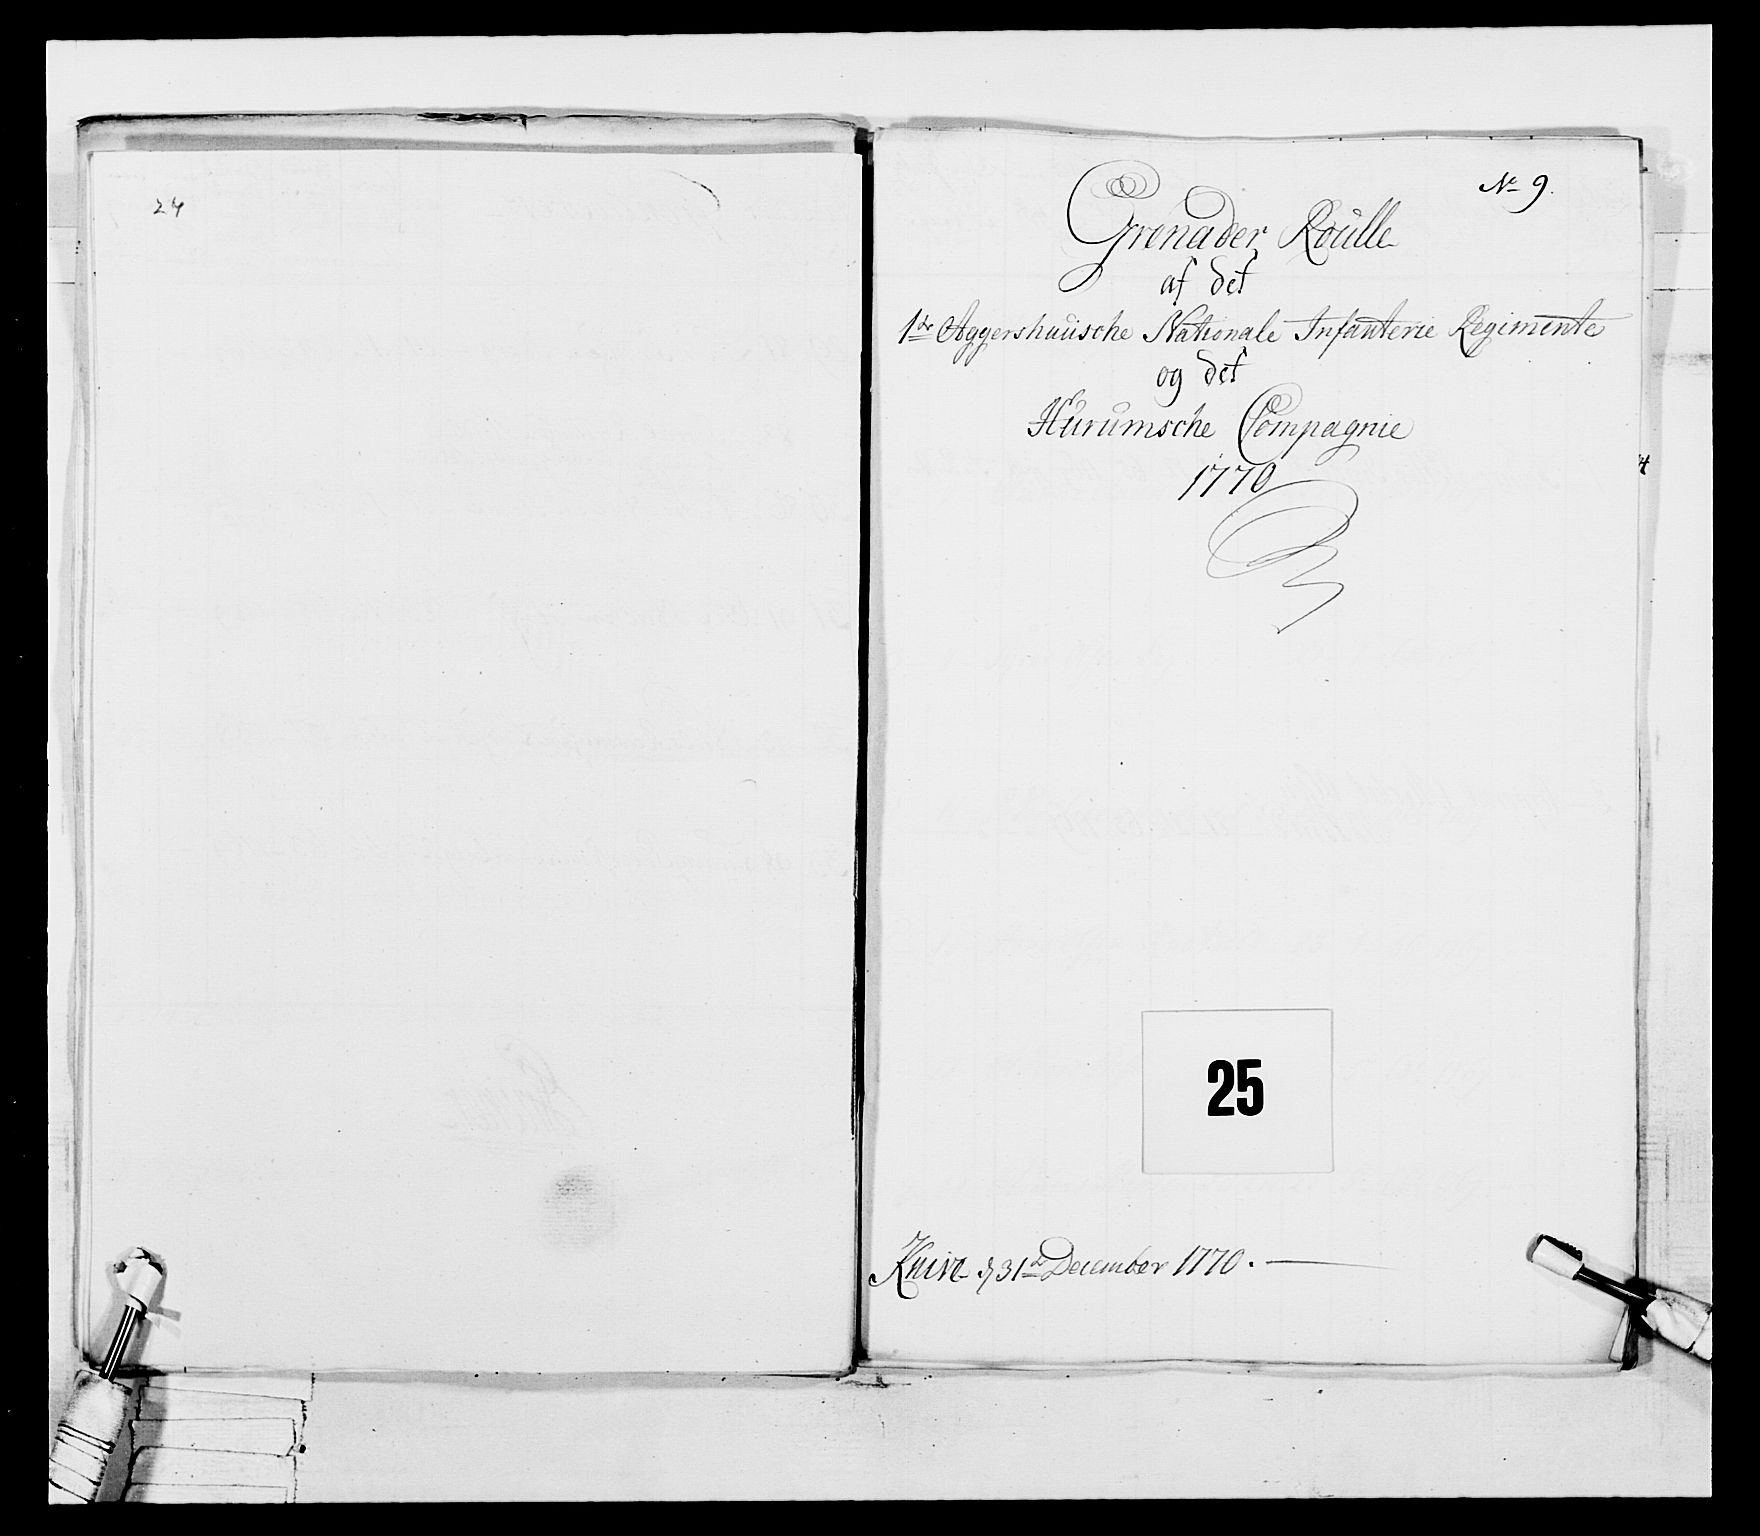 24
No 9.
Grenader Roulle
af det
1ste Aggershuusche Nationale Infanterie Regimente
og det
Hurumsche Compagnie
1770
25
31te December 1770.